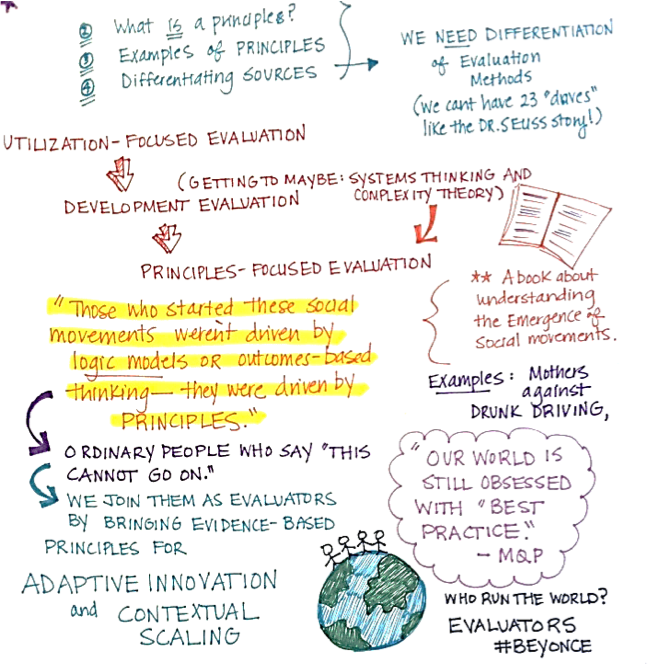 ② What IS a principles?
③ Examples of PRINCIPLES
④ Differentiating SOURCES
WE NEED DIFFERENTIATION
of Evaluation
Methods
(we cant have 23 "daves"
like the DR. SEUSS story!)
UTILIZATION-FOCUSED EVALUATION
(GETTING TO MAYBE: SYSTEMS THINKING AND
COMPLEXITY THEORY)
DEVELOPMENT EVALUATION
PRINCIPLES-FOCUSED EVALUATION
** A book about
understanding
the Emergence of
Social movements.
"Those who started these social
movements weren't driven by
logic models OR outcomes-based
thinking — they were driven by
PRINCIPLES."
Examples: Mothers
against
DRUNK DRIVING,
ORDINARY PEOPLE WHO SAY "THIS
CANNOT GO ON."
WE JOIN THEM AS EVALUATORS
BY BRINGING EVIDENCE-BASED
PRINCIPLES FOR
ADAPTIVE INNOVATION
and CONTEXTUAL
SCALING
"OUR WORLD IS
STILL OBSESSED
WITH "BEST
PRACTICE."
- MQP
WHO RUN THE WORLD?
EVALUATORS
#BEYONCE